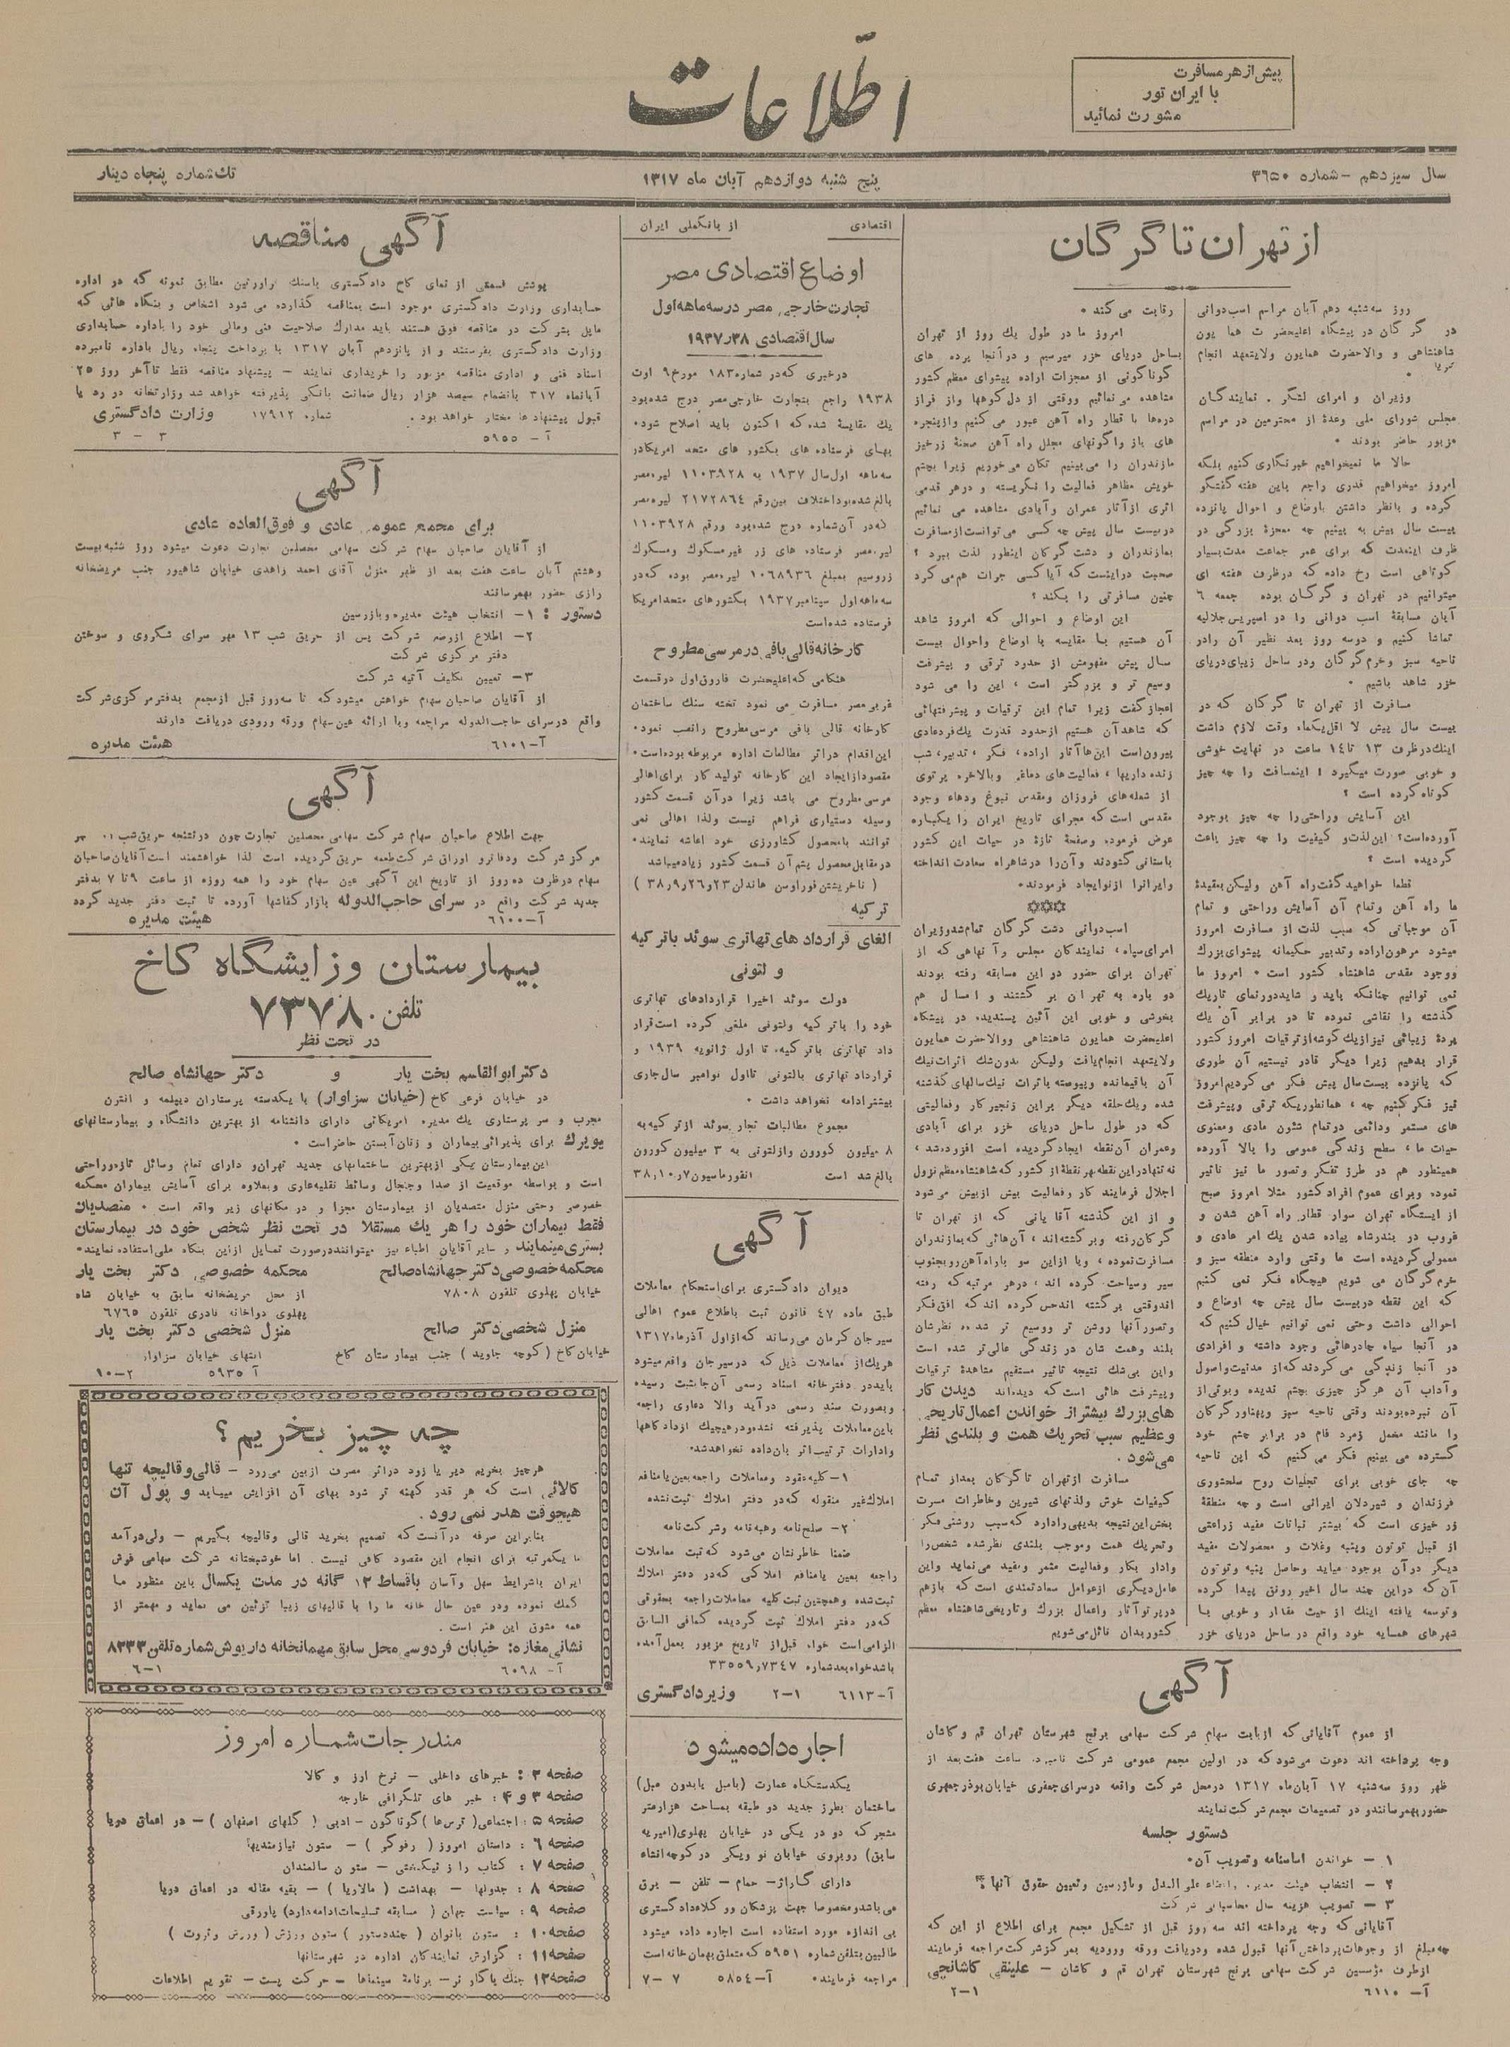 پیش از هر مسافرت
با ایران تور
مشورت نمائید
اطلاعات
سال سیزدهم – شماره ۳۶۵۰
پنج شنبه دوازدهم آبان ماه ۱۳۱۷
تك شماره پنجاه دینار
از تهران تا گرگان
روز سه‌شنبه دهم آبان مراسم اسب‌دوانی
در گرگان در پیشگاه اعلیحضرت همایون
شاهنشاهی و والاحضرت همایون ولایتعهد انجام
وزیران و امرای لشگر، نمایندگان
مجلس شورای ملی وعدهٔ از محترمین در مراسم
مزبور حاضر بودند.
حالا ما نمیخواهیم خبرنگاری کنیم بلکه
امروز میخواهیم قدری راجع باین هفته گفتگو
کرده و بانظر داشتن باوضاع و احوال پانزده
بیست سال پیش به بینیم چه معجزهٔ بزرگی در
ظرف اینمدت که برای عمر جماعت مدت بسیار
کوتاهی است رخ داده که درظرف هفته ای
میتوانیم در تهران و گرگان بوده جمعه ۶
آبان مسابقهٔ اسب دوانی را در اسپریس جلالیه
تماشا کنیم و دوسه روز بعد نظیر آن رادر
ناحیه سبز وخرم گرگان ودر ساحل زیبای دریای
خزر شاهد باشیم.
مسافرت از تهران تا گرگان که در
بیست سال پیش لا اقل یکماه وقت لازم داشت
اینك درظرف ۱۳ تا ۱۴ ساعت در نهایت خوشی
و خوبی صورت میگیرد؛ اینمسافت را چه چیز
کوتاه کرده است ؟
این آسایش وراحتی را چه چیز بوجود
آورده‌است؟ این‌لذت و کیفیت را چه چیز باعث
گردیده است ؟
قطعا خواهید گفت راه آهن ولیکن بعقیدهٔ
ما راه آهن وتمام آن آسایش وراحتی و تمام
آن موجباتی که سبب لذت از مسافرت امروز
میشود مرهون اراده وتدبیر حکیمانه پیشوای بزرگ
ووجود مقدس شاهنشاه کشور است. امروز ما
نمی توانیم چنانکه باید و شاید دورنمای تاریك
گذشته را نقاشی نموده تا در برابر آن یك
پردهٔ زیبائی نیز از یك گوشه از ترقیات امروز کشور
قرار بدهیم زیرا دیگر قادر نیستیم آن طوری
که پانزده بیست سال پیش فکر می کردیم امروز
نیز فکر کنیم چه، همانطوریکه ترقی وپیشرفت
های مستمر ودائمی درتمام شئون مادی ومعنوی
حیات ما، سطح زندگی عمومی را بالا آورده
همینطور هم در طرز تفکر وتصور ما نیز تاثیر
نموده وبرای عموم افراد کشور مثلا امروز صبح
از ایستگاه تهران سوار قطار راه آهن شدن و
غروب در بندرشاه پیاده شدن یك امر عادی و
معمولی گردیده است ما وقتی وارد منطقه سبز و
خرم گرگان می شویم هیچگاه فکر نمی کنیم
که این نقطه دربیست سال پیش چه اوضاع و
احوالی داشت وحتی نمی توانیم خیال کنیم که
در آنجا سیاه چادرهائی وجود داشته و افرادی
در آنجا زندگی می کردند که از مدنیت واصول
وآداب آن هرگز چیزی بچشم ندیده وبوئی از
آن نبرده بودند وقتی ناحیه سبز وپهناور گرگان
را مانند مخمل زمرد فام در برابر چشم خود
گسترده می بینیم فکر می کنیم که این ناحیه
چه جای خوبی برای تجلیات روح سلحشوری
فرزندان و شیردلان ایرانی است و چه منطقهٔ
زرخیزی است که بیشتر نباتات مفید زراعتی
از قبیل توتون وپنبه وغلات و محصولات مفید
دیگر درآن بوجود میاید وحاصل پنبه وتوتون
آن که دراین چند سال اخیر رونق پیدا کرده
وتوسعه یافته اینك از حیث مقدار و خوبی با
شهرهای همسایه خود واقع در ساحل دریای خزر
رقابت می کند.
امروز ما در طول یك روز از تهران
بساحل دریای خزر میرسیم و در آنجا پرده های
گوناگونی از معجزات اراده پیشوای معظم کشور
مشاهده می نمائیم ووقتی از دل کوهها واز فراز
دره‌ها با قطار راه آهن عبور می کنیم وازپنجره
های باز واگونهای مجلل راه آهن صحنهٔ زرخیز
مازندران را می‌بینیم تکان می‌خوریم زیرا بچشم
خویش مظاهر فعالیت را نگریسته و درهر قدمی
اثری ازآثار عمران وآبادی مشاهده می نمائیم
دربیست سال پیش چه کسی می‌توانست از مسافرت
بمازندران و دشت گرگان اینطور لذت ببرد ؟
صحبت دراینست که آیا کسی جرات هم‌می کرد
چنین مسافرتی را بکند ؟
این اوضاع و احوالی که امروز شاهد
آن هستیم با مقایسه با اوضاع واحوال بیست
سال پیش مفهومش از حدود ترقی و پیشرفت
وسیع تر و بزرگتر است، این را می شود
اعجاز گفت زیرا تمام این ترقیات و پیشرفتهائی
که شاهدآن هستیم ازحدود قدرت یك فردعادی
بیرون‌است این‌ها آثار اراده، فکر، تدبیر، شب
زنده داریها، فعالیت‌های دماغی وبالاخره پرتوی
از شعله‌های فروزان ومقدس نبوغ ودهاء وجود
مقدسی است که مجرای تاریخ ایران را یکباره
عوض فرموده وصفحهٔ تازهٔ در حیات این کشور
باستانی گشودند وآن‌را درشاهراه سعادت انداخته
وایرانرا ازنوایجاد فرمودند.
اسب‌دوانی دشت گرگان تمام‌شدووزیران
امرای‌سپاه، نمایندگان مجلس و آنهائی که از
تهران برای حضور در این مسابقه رفته بودند
دو باره به تهران بر گشتند و امسال هم
بخوشی و خوبی این آئین پسندیده در پیشگاه
اعلیحضرت همایون شاهنشاهی ووالاحضرت همایون
ولایتعهد انجام‌یافت ولیکن بدون‌شك اثرات نیك
آن باقیمانده وپیوسته باثرات نیك سالهای گذشته
شده ویك حلقه دیگر براین زنجیر کار وفعالیتی
که در طول ساحل دریای خزر برای آبادی
وعمران آن‌نقطه ایجاد گردیده است افزوده‌شد،
نه تنهادراین نقطه بهر نقطهٔ از کشور که شاهنشاه معظم نزول
اجلال فرمایند کار وفعالیت بیش ازپیش می‌شود
و از این گذشته آقایانی که از تهران تا
گرگان‌رفته وبر گشته‌اند، آن‌هائی که بمازندران
مسافرت نموده، ویا ازاین سو باراه آهن رو بجنوب
سیر وسیاحت کرده اند، درهر مرتبه که رفته
اندوقتی برگشته اندحس کرده اند که افق‌فکر
وتصورآنها روشن تر ووسیع تر شده، نظرشان
بلند وهمت شان در زندگی عالی‌تر شده است
واین بی‌شك نتیجه تاثیر مستقیم مشاهدهٔ ترقیات
وپیشرفت هائی است که دیده‌اند دیدن کار
های بزرك بیشتر از خواندن اعمال تاریخی
وعظیم سبب تحریك همت و بلندی نظر
می‌شود.
مسافرت ازتهران تا گرگان بعداز تمام
کیفیات خوش ولذتهای شیرین وخاطرات مسرت
بخش این نتیجه بدیهی رادارد که سبب روشنی فکر
وتحریك همت وموجب بلندی نظرشده شخص را
وادار بکار وفعالیت مثمر ومفید می‌نماید واین
عامل‌دیگری ازعوامل سعادتمندی است که بازهم
درپرتو آثار واعمال بزرك وتاریخی شاهنشاه معظم
کشوربدان نائل می‌شویم
آگهی
از عموم آقایانی که ازبابت سهام شرکت سهامی برنج شهرستان تهران قم و کاشان
وجه پرداخته اند دعوت می‌شود که در اولین مجمع عمومی شرکت نامبرده ساعت هفت بعد از
ظهر روز سه‌شنبه ۱۷ آبان‌ماه ۱۳۱۷ درمحل شرکت واقعه درسرای جعفری خیابان بوذرجمهری
حضور بهمرسانند و در تصمیمات مجمع شرکت نمایند
دستور جلسه
۱ – خواندن اساسنامه وتصویب آن.
۲ – انتخاب هیئت مدیره واعضاء علی‌البدل وبازرسین وتعیین حقوق آنها
۳ – تصویب هزینه سال محاسباتی شرکت
آقایانی که وجه پرداخته اند سه روز قبل از تشکیل مجمع برای اطلاع از این که
چه‌مبلغ از وجوهات پرداختی آنها قبول شده ودریافت ورقه ورودیه بمرکز شرکت مراجعه فرمایند
ازطرف مؤسسین شرکت سهامی برنج شهرستان تهران قم و کاشان – علینقی کاشانچی
آ– ۶۱۱۰
۲–۱
اقتصادی
از بانك‌ملی ایران
اوضاع اقتصادی مصر
تجارت خارجی مصر درسه ماهه اول
سال اقتصادی ۱۹۳۷ر۳۸
درخبری که در شماره ۱۸۳ مورخ ۹ اوت
۱۹۳۸ راجع بتجارت خارجی مصر درج شده‌بود
یك مقایسهٔ شده که اکنون باید اصلاح شود.
بهای فرستاده های بکشور های متحد امریکادر
سه‌ماهه اول‌سال ۱۹۳۷ به ۱۱۰۳۹۲۸ لیره‌مصر
بالغ‌شده‌بود اختلاف بین‌رقم ۲۱۷۲۸۶۴ لیره‌مصر
که‌در آن‌شماره درج شده‌بود ورقم ۱۱۰۳۹۲۸
لیره‌مصر فرستاده های زر غیرمسکوك ومسکوك
زروسیم بمبلغ ۱۰۶۸۹۳۶ لیره‌مصر بوده که‌در
سه‌ماهه اول سپتامبر ۱۹۳۷ بکشورهای متحدامریکا
فرستاده شده‌است
کارخانه قالی بافی درمرسی مطروح
هنگامی که اعلیحضرت فاروق‌اول درقسمت
غربی‌مصر مسافرت می نمود تخته سنك ساختمان
کارخانه قالی بافی مرسی‌مطروح رانصب نمود.
این‌اقدام دراثر مطالعات اداره مربوطه بوده‌است.
مقصودازایجاد این کارخانه تولیدکار برای‌اهالی
مرسی‌مطروح می باشد زیرا درآن قسمت کشور
وسیله دستیاری فراهم نیست ولذا اهالی نمی
توانند بامحصول کشاورزی خود اعاشه نمایند.
درمقابل‌محصول پشم آن قسمت کشور زیاد میباشد
( ناخریشتن فوراوسن هاندلن ۲۳و۲۶ر۹ر۳۸ )
ترکیه
الغای قرارداد های تهاتری سوئد باترکیه
و لتونی
دولت سوئد اخیرا قراردادهای تهاتری
خود را باترکیه ولتونی ملغی کرده است‌قرار
داد تهاتری باترکیه تا اول ژانویه ۱۹۳۹ و
قرارداد تهاتری بالتونی تااول نوامبر سال‌جاری
بیشترادامه نخواهد داشت.
مجموع مطالبات تجار سوئد ازترکیه به
۸ میلیون کورون وازلتونی به ۳ میلیون کورون
بالغ شد است انفورماسیون ۷ر۱۰ر۳۸
آگهی
دیوان دادگستری برای‌استحکام معاملات
طبق ماده ۴۷ قانون ثبت باطلاع عموم اهالی
سیرجان کرمان می‌رساند که ازاول آذرماه۱۳۱۷
هریك‌از معاملات ذیل که درسیرجان واقع میشود
بایددر دفترخانه اسناد رسمی آن‌جا بثبت رسیده
وبصورت سند رسمی درآید والا دعاوی راجعه
باین‌معاملات پذیرفته نشده ودرهیچیك ازدادگاهها
وادارات ترتیب‌اثر بان‌داده نخواهدشد.
۱– کلیه‌عقود ومعاملات راجعه بعین‌یامنافع
املاك‌غیر منقوله که‌در دفتر املاك ثبت نشده
۲– صلح‌نامه وهبه‌نامه وشرکت‌نامه
ضمنا خاطرنشان می‌شود که ثبت معاملات
راجعه بعین یامنافع املاکی که‌در دفتر املاك
ثبت‌شده وهمچنین ثبت کلیه معاملات راجعه بحقوقی
که‌در دفتر املاك ثبت گردیده کمافی السابق
الزامی‌است خواه قبل‌از تاریخ مزبور بعمل‌آمده
باشد خواه بعد شماره ۳۳۵۵۹ر۷۳۴۷
آ–۶۱۱۳ ۲–۱ وزیردادگستری
اجاره داده میشود
یکدستگاه عمارت (بامبل یابدون مبل)
ساختمان بطرز جدید دو طبقه بمساحت هزارمتر
مشجر که دو در یکی در خیابان پهلوی(امیریه
سابق) روبروی خیابان نو ویکی درکوچه انشاء
دارای گاراژ– حمام – تلفن – برق
می‌باشدو مخصوصا جهت پزشکان ووکلاء دادگستری
بی اندازه مورد استفاده است اجاره داده میشود
طالبین بتلفن شماره ۵۹۵۱ که‌متعلق بهمان خانه است
مراجعه فرمایند. آ–۵۸۵۴ ۷–۷
آگهی مناقصه
پوشش قسمتی از نمای کاخ دادگستری باسنك تراورتین مطابق نمونه که در اداره
حسابداری وزارت دادگستری موجود است بمناقصه گذارده می شود اشخاص و بنگاه هائی که
مایل بشرکت در مناقصه فوق هستند باید مدارك صلاحیت فنی ومالی خود را باداره حسابداری
وزارت دادگستری بفرستند و از پانزدهم آبان ۱۳۱۷ با پرداخت پنجاه ریال باداره نامبرده
اسناد فنی و اداری مناقصه مزبور را خریداری نمایند – پیشنهاد مناقصه فقط تاآخر روز ۲۵
آبانماه ۳۱۷ بانضمام سیصد هزار ریال ضمانت بانکی پذیرفته خواهد شد وزارتخانه در رد یا
قبول پیشنهادها مختار خواهد بود. شماره ۱۷۹۱۲ وزارت دادگستری
آ– ۵۹۵۵ ۳ – ۳
آگهی
برای مجمع عمومی عادی و فوق‌العاده عادی
از آقایان صاحبان سهام شرکت سهامی محصلین تجارت دعوت میشود روز شنبه بیست
وهشتم آبان ساعت هفت بعد از ظهر منزل آقای احمد زاهدی خیابان شاهپور جنب مریضخانه
رازی حضور بهمرسانند
دستور : ۱– انتخاب هیئت مدیره وبازرسین
۲– اطلاع ازوضع شرکت پس از حریق شب ۱۳ مهر سرای شگروی و سوختن
دفتر مرکزی شرکت
۳– تعیین تکلیف آتیه شرکت
از آقایان صاحبان سهام خواهش میشود که تا سه‌روز قبل ازمجمع بدفترمرکزی‌شرکت
واقع درسرای حاجب‌الدوله مراجعه وبا ارائه عین‌سهام ورقه ورودی دریافت دارند
آ–۶۱۰۱ هیئت مدیره
آگهی
جهت اطلاع صاحبان سهام شرکت سهامی محصلین تجارت چون درنتیجه حریق‌شب
مرکز شرکت ودفاتر و اوراق شرکت‌طعمه حریق گردیده است لذا خواهشمند است‌آقایان‌صاحبان
سهام درظرف ده‌روز از تاریخ این آگهی عین سهام خود را همه روزه از ساعت ۹ تا ۷ بدفتر
جدید شرکت واقع در سرای حاجب‌الدوله بازار کفاشها آورده تا ثبت دفتر جدید گردد
آ–۶۱۰۰ هیئت مدیره
بیمارستان و زایشگاه کاخ
تلفن ۷۳۷۸۰
در تحت نظر
دکتر ابوالقاسم بخت یار و دکتر جهانشاه صالح
در خیابان فرعی کاخ (خیابان سزاوار) با یکدسته پرستاران دیپلمه و انترن
مجرب و سر پرستاری یك مدیره امریکائی دارای دانشنامه از بهترین دانشگاه و بیمارستانهای
نیویرك برای پذیرائی بیماران و زنان‌آبستن حاضراست.
این‌بیمارستان یکی ازبهترین ساختمانهای جدید تهران‌و دارای تمام وسائل تازه‌وراحتی
است و بواسطه موقعیت از صدا وجنجال وسائط نقلیه‌عاری وبعلاوه برای آسایش بیماران محکمه
خصوصی وحتی منزل متصدیان از بیمارستان مجزا و در مکانهای زیر واقع است. متصدیان
فقط بیماران خود را هر یك مستقلا در تحت نظر شخص خود در بیمارستان
بستری مینمایند و سایر آقایان اطباء نیز میتواننددرصورت تمایل ازاین بنگاه ملی‌استفاده نمایند.
محکمه خصوصی دکتر جهانشاه صالح
خیابان پهلوی تلفون ۷۸۰۸
محکمه خصوصی دکتر بخت یار
از محل مریضخانه سابق به خیابان شاه
پهلوی دواخانه نادری تلفون ۶۷۶۵
منزل شخصی دکتر صالح
خیابان کاخ ( کوچه جاوید ) جنب بیمارستان کاخ
منزل شخصی دکتر بخت یار
انتهای خیابان سزاوار
آ ۵۹۳۵ ۲–۱۰
چه چیز بخریم؟
هرچیز بخریم دیر یا زود دراثر مصرف ازبین می‌رود – قالی و قالیچه تنها
کالائی است که هر قدر کهنه تر شود بهای آن افزایش میباید و پول آن
هیچوقت هدر نمی رود.
بنابراین صرفه درآنست که تصمیم بخرید قالی وقالیچه بگیریم – ولی درآمد
ما یکمرتبه برای انجام این مقصود کافی نیست. اما خوشبختانه شرکت سهامی فرش
ایران باشرایط سهل وآسان باقساط ۱۲ گانه در مدت یکسال باین منظور ما
کمك نموده ودر عین حال خانه ما را با قالیهای زیبا تزئین می نماید و مهمتر از
همه مشوق این هنر است.
نشانی مغازه: خیابان فردوسی محل سابق مهمانخانه داریوش شماره تلفن ۸۲۳۳
آ– ۶۰۹۸ ۶–۱
مندرجات شماره امروز
صفحه ۲ : خبرهای داخلی – نرخ ارز و کالا
صفحه ۳ و ۴ : خبر های تلگرافی خارجه
صفحه ۵ : اجتماعی( ترس‌ها ) گوناگون – ادبی ( گلهای اصفهان ) – در اعماق دریا
صفحه ۶ : داستان امروز ( رفوگر ) – ستون نیازمندیها
صفحه ۷ : کتاب راز نیکبختی – ستون سالمندان
صفحه ۸ : جدولها – بهداشت ( مالاریا ) – بقیه مقاله در اعماق دریا
صفحه ۹ : سیاست جهان ( مسابقه تسلیحات‌ادامه‌دارد) پاورقی
صفحه ۱۰ : ستون بانوان ( چنددستور ) ستون ورزش ( ورزش وثروت )
صفحه ۱۱ : گزارش نمایندگان اداره در شهرستانها
صفحه ۱۲ جنك پاکار نو – برنامهٔ سینماها – حرکت پست – تقویم اطلاعات